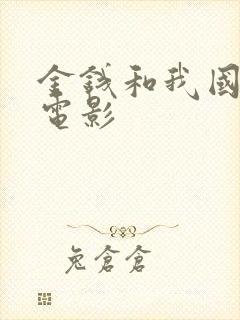 金錢和我國
電影
兔倉倉